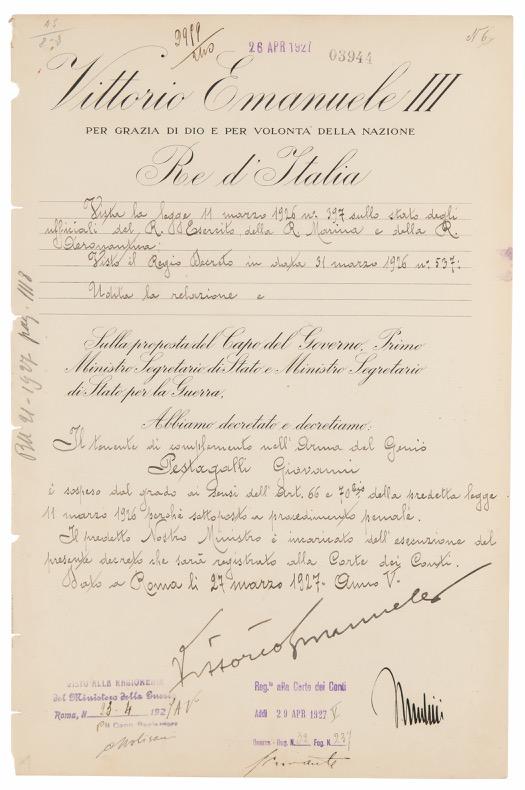 26 APR 1927
03944
Vittorio Emanuele III
PER GRAZIA DI DIO E PER VOLONTÀ DELLA NAZIONE
Re d'Italia
Vista la legge 11 marzo 1926 n. 397 sullo stato degli
ufficiali del R. Esercito, della R. Marina e della R.
Aeronautica;
Visto il Regio Decreto in data 31 marzo 1926 n. 537;
Udita la relazione e
Sulla proposta del Capo del Governo, Primo
Ministro Segretario di Stato e Ministro Segretario
di Stato per la Guerra;
Abbiamo decretato e decretiamo:
Il tenente di complemento nell'Arma del Genio
Pestagalli Giovanni
è sospeso dal grado ai sensi dell'Art. 66 e 70 della predetta legge
11 marzo 1926 perchè sottoposto a procedimento penale.
Il predetto Nostro Ministro è incaricato dell'esecuzione del
presente decreto che sarà registrato alla Corte dei Conti.
Dato a Roma li 27 marzo 1927 - Anno V-
Vittorio Emanuele
BU 21-1927 pag. 1118
VISTO ALLA RAGIONERIA
del Ministero della Guerra
Roma, li 23-4 1927 A V°
Reg.to alla Corte dei Conti
Addì 29 APR 1927 V
Guerra - Reg. N. 32 Fog. N. 237